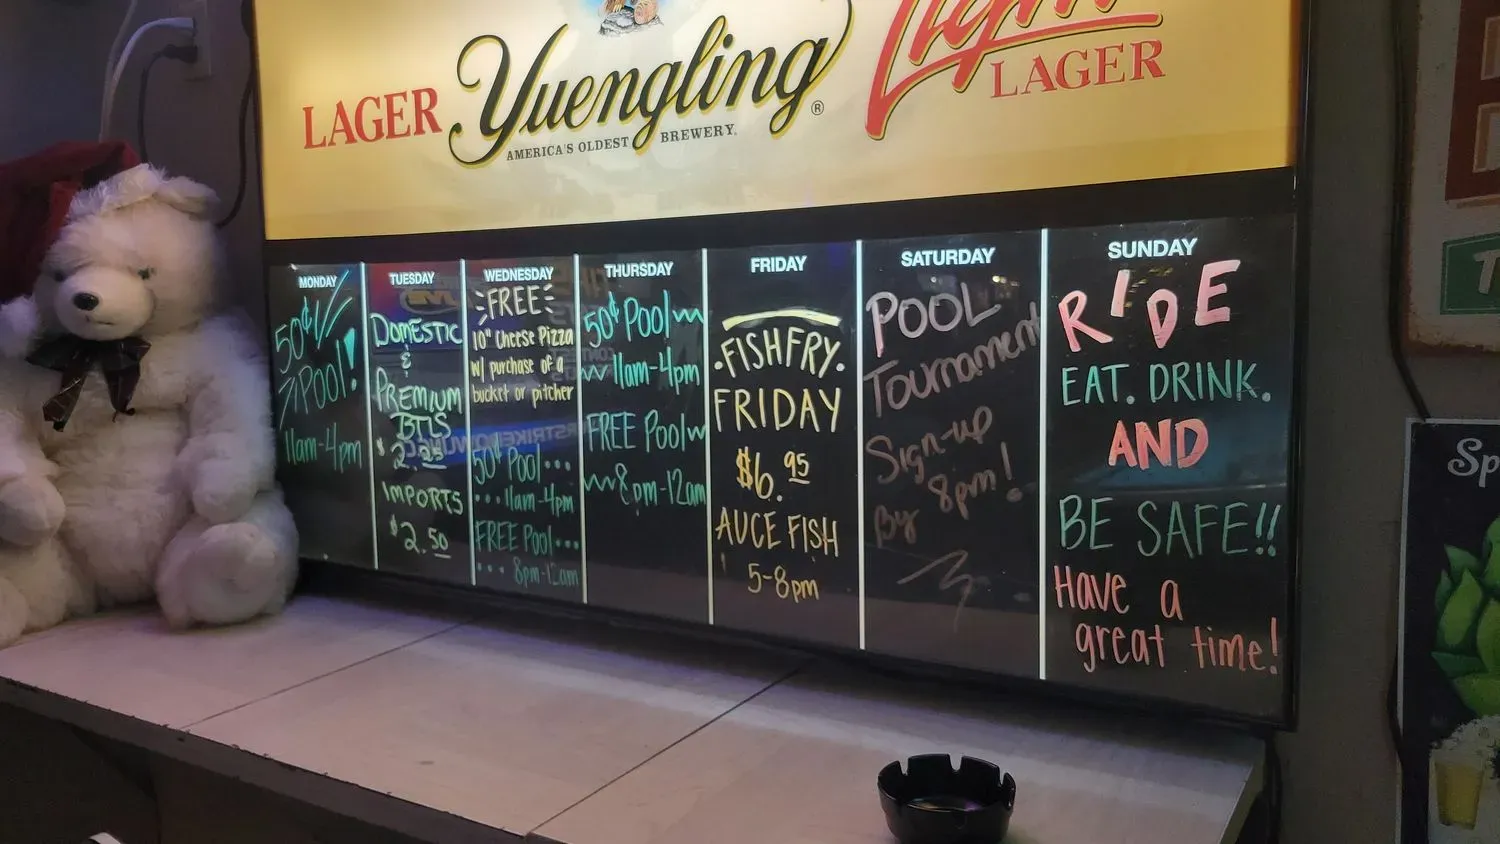 LAGER
Yuengling®
AMERICA'S OLDEST BREWERY.
Light
LAGER
MONDAY
50¢
POOL!
11am-4pm
TUESDAY
DOMESTIC
&
PREMIUM
BTLS
$2.25
IMPORTS
$2.50
WEDNESDAY
FREE
10" Cheese Pizza
w/ purchase of a
bucket or pitcher
50¢ Pool...
...11am-4pm
FREE Pool...
... 8pm-12am
THURSDAY
50¢ Pool
11am-4pm
FREE Pool
8pm-12am
FRIDAY
.FISH FRY.
FRIDAY
$6.95
AUCE FISH
5-8pm
SATURDAY
POOL
Tournament
Sign-up
By 8pm!
SUNDAY
RIDE
EAT. DRINK.
AND
BE SAFE!!
Have a
great time!
Sp
T